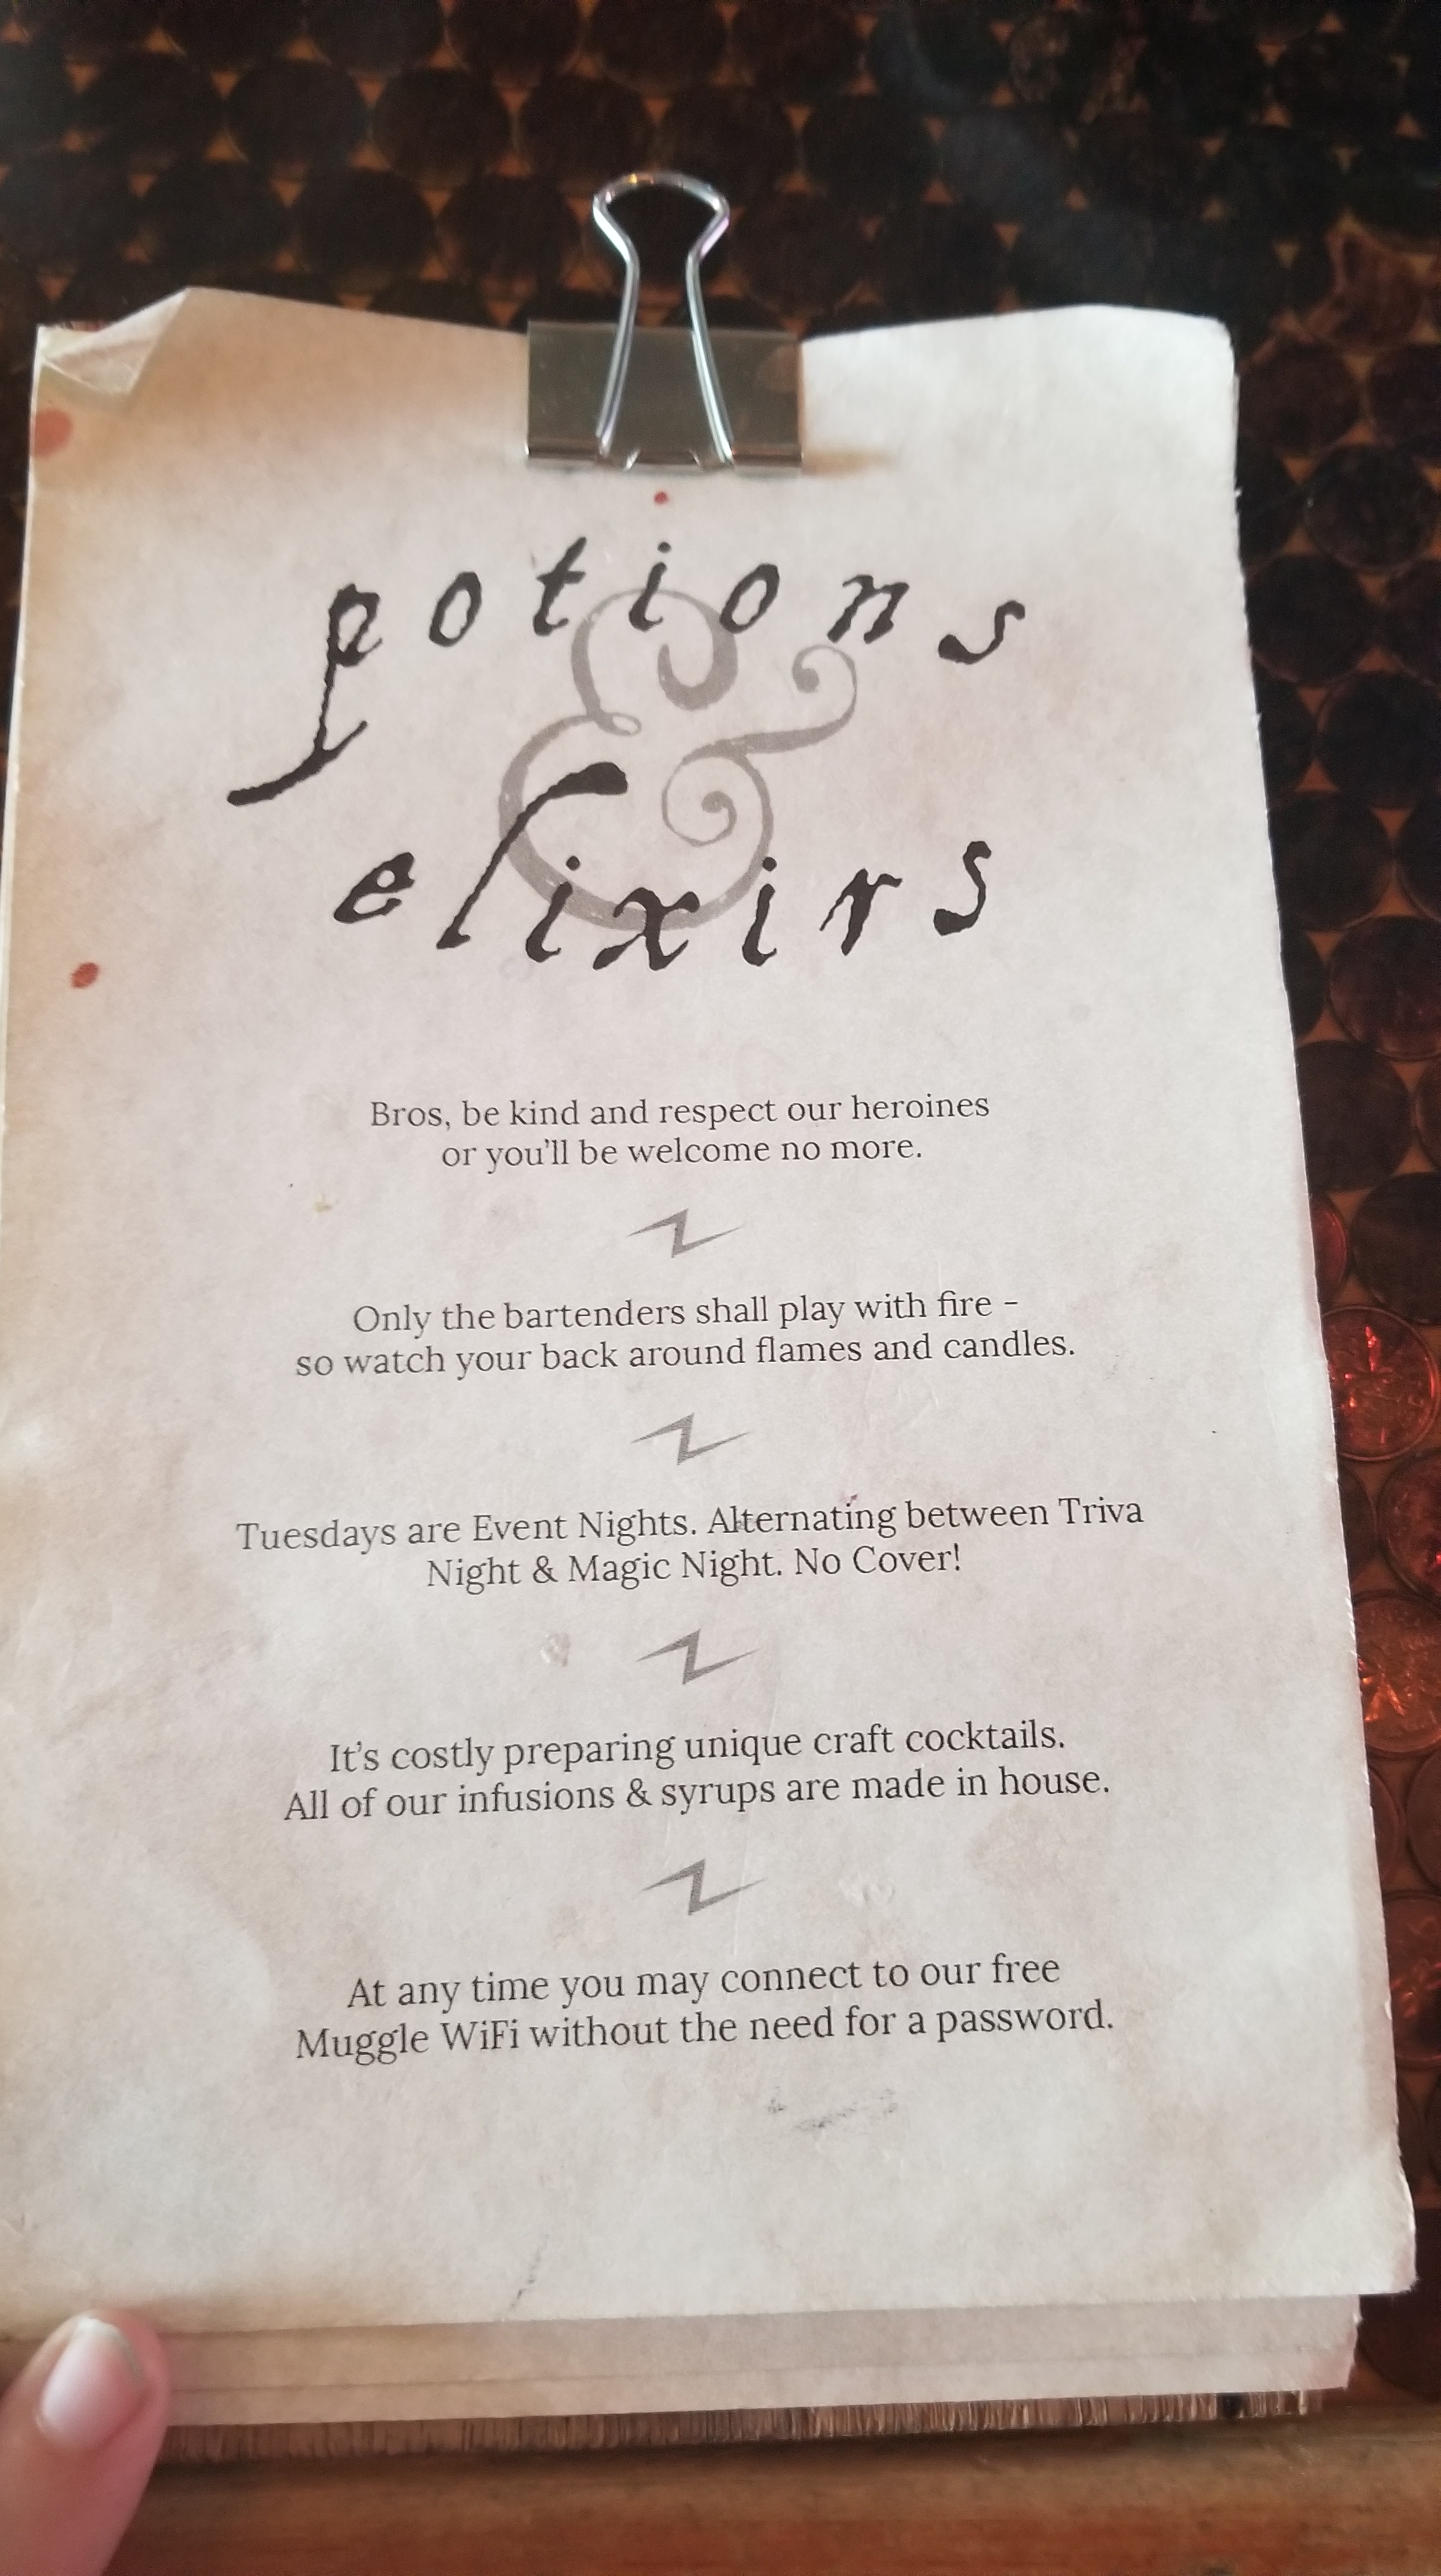 potions
&
elixirs
Bros, be kind and respect our heroines
or you'll be welcome no more.
Only the bartenders shall play with fire –
so watch your back around flames and candles.
Tuesdays are Event Nights. Alternating between Triva
Night & Magic Night. No Cover!
It's costly preparing unique craft cocktails.
All of our infusions & syrups are made in house.
At any time you may connect to our free
Muggle WiFi without the need for a password.